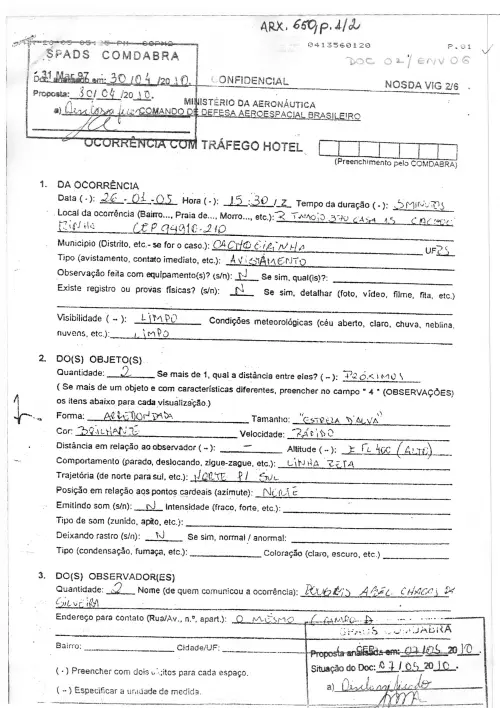 ARX. 650, p. 1/2
0413560120 P.01
DOC 02 / ENV 06
SPADS COMDABRA
CONFIDENCIAL NOSDA VIG 2/6
31 Mar 97 em: 30/04/2010.
Proposta: 30/04/2010.
MINISTÉRIO DA AERONÁUTICA
a) COMANDO DE DEFESA AEROESPACIAL BRASILEIRO
OCORRÊNCIA COM TRÁFEGO HOTEL
(Preenchimento pelo COMDABRA)
1. DA OCORRÊNCIA
Data (·): 26-01-05 Hora (·): 15:30/Z Tempo da duração (·): 5 MINUTOS
Local da ocorrência (Bairro..., Praia de..., Morro..., etc.): R TAMOIO 370 CASA 15 CACHOEI
RINHA CEP 94910-210
Município (Distrito, etc.- se for o caso.): CACHOEIRINHA UF RS
Tipo (avistamento, contato imediato, etc.): AVISTAMENTO
Observação feita com equipamento(s)? (s/n): N Se sim, qual(is)?:
Existe registro ou provas físicas? (s/n): N Se sim, detalhar (foto, vídeo, filme, fita, etc.)
Visibilidade (~): LIMPO Condições meteorológicas (céu aberto, claro, chuva, neblina,
nuvens, etc.): LIMPO
2. DO(S) OBJETO(S)
Quantidade: 2 Se mais de 1, qual a distância entre eles? (~): PRÓXIMOS
( Se mais de um objeto e com características diferentes, preencher no campo " 4 " (OBSERVAÇÕES)
os itens abaixo para cada visualização.)
Forma: ARREDONDADA Tamanho: "ESTRELA D'ALVA"
Cor: BRILHANTE Velocidade: RÁPIDO
Distância em relação ao observador (~): — Altitude (~): ± FL 400 (ALTO)
Comportamento (parado, deslocando, zigue-zague, etc.): LINHA RETA
Trajetória (de norte para sul, etc.): NORTE P/ SUL
Posição em relação aos pontos cardeais (azimute): NORTE
Emitindo som (s/n): N Intensidade (fraco, forte, etc.):
Tipo de som (zunido, apito, etc.):
Deixando rastro (s/n): N Se sim, normal / anormal:
Tipo (condensação, fumaça, etc.): Coloração (claro, escuro, etc.)
3. DO(S) OBSERVADOR(ES)
Quantidade: 2 Nome (de quem comunicou a ocorrência): DOUGLAS ABEL CHAGAS DA
SILVEIRA
Endereço para contato (Rua/Av., n.º, apart.): O MESMO CAMPO A
SPADS COMDABRA
Bairro: Cidade/UF: CEP:
Proposta analisada em: 07/05 2010.
(·) Preencher com dois dígitos para cada espaço.
Situação do Doc: 07/05 2010.
(~) Especificar a unidade de medida.
a) Desclassificado